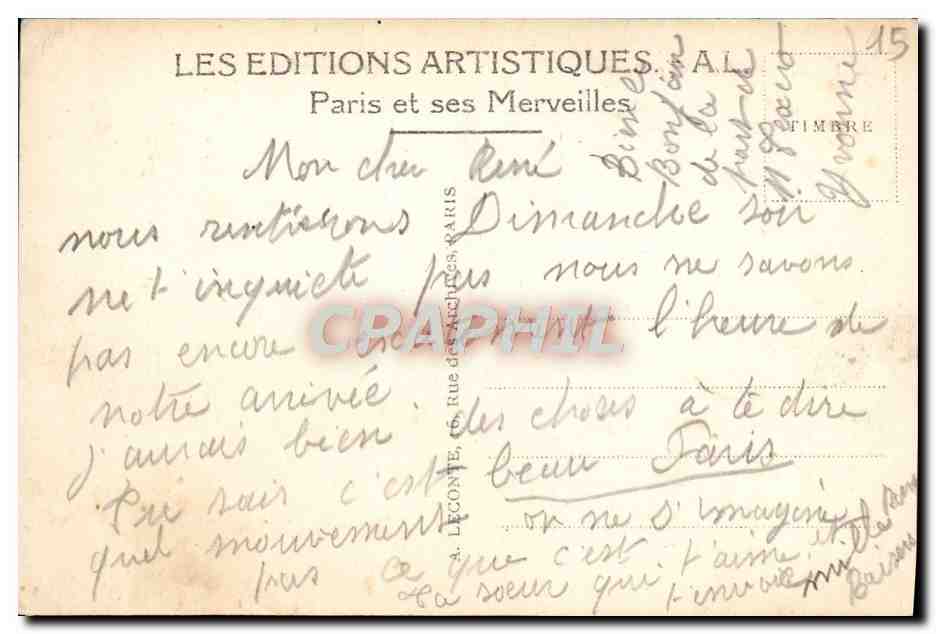 LES EDITIONS ARTISTIQUES. A.L.
Paris et ses Merveilles
TIMBRE
15
A. LECONTE, 16, Rue des Archives, PARIS
CRAPHIL
Mon cher René
nous rentrerons Dimanche soir
ne t'inquiete pas nous ne savons
pas encore exactement l'heure de
notre arrivée.
j'aurais bien des choses à te dire
Tu sais c'est beau Paris
quel mouvement on ne s'imagine
pas ce que c'est
Ta soeur qui t'aime et
t'envoie mille Bons
Baisers
Yvonne
Bien le
Bonjour
de la
part de